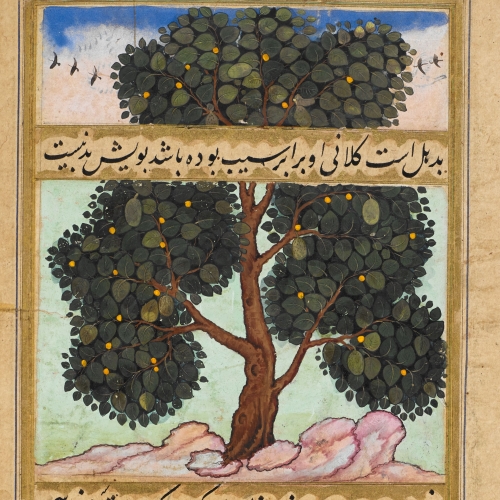 بدهل است کلانی او برابر سیب بوده باشد بویش بد نیست